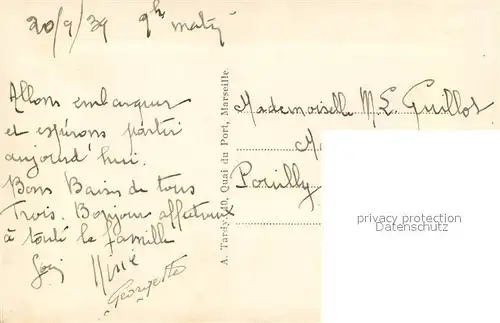 20/9/39 9h matin
Allons embarquer
et espérons partir
aujourd'hui.
Bons Baisers de tous
Trois. Bonjour affectueux
à toute la famille
Georgette
A. Tardy, 40, Quai du Port, Marseille.
Mademoiselle M. L. Guillot
Pouilly
privacy protection